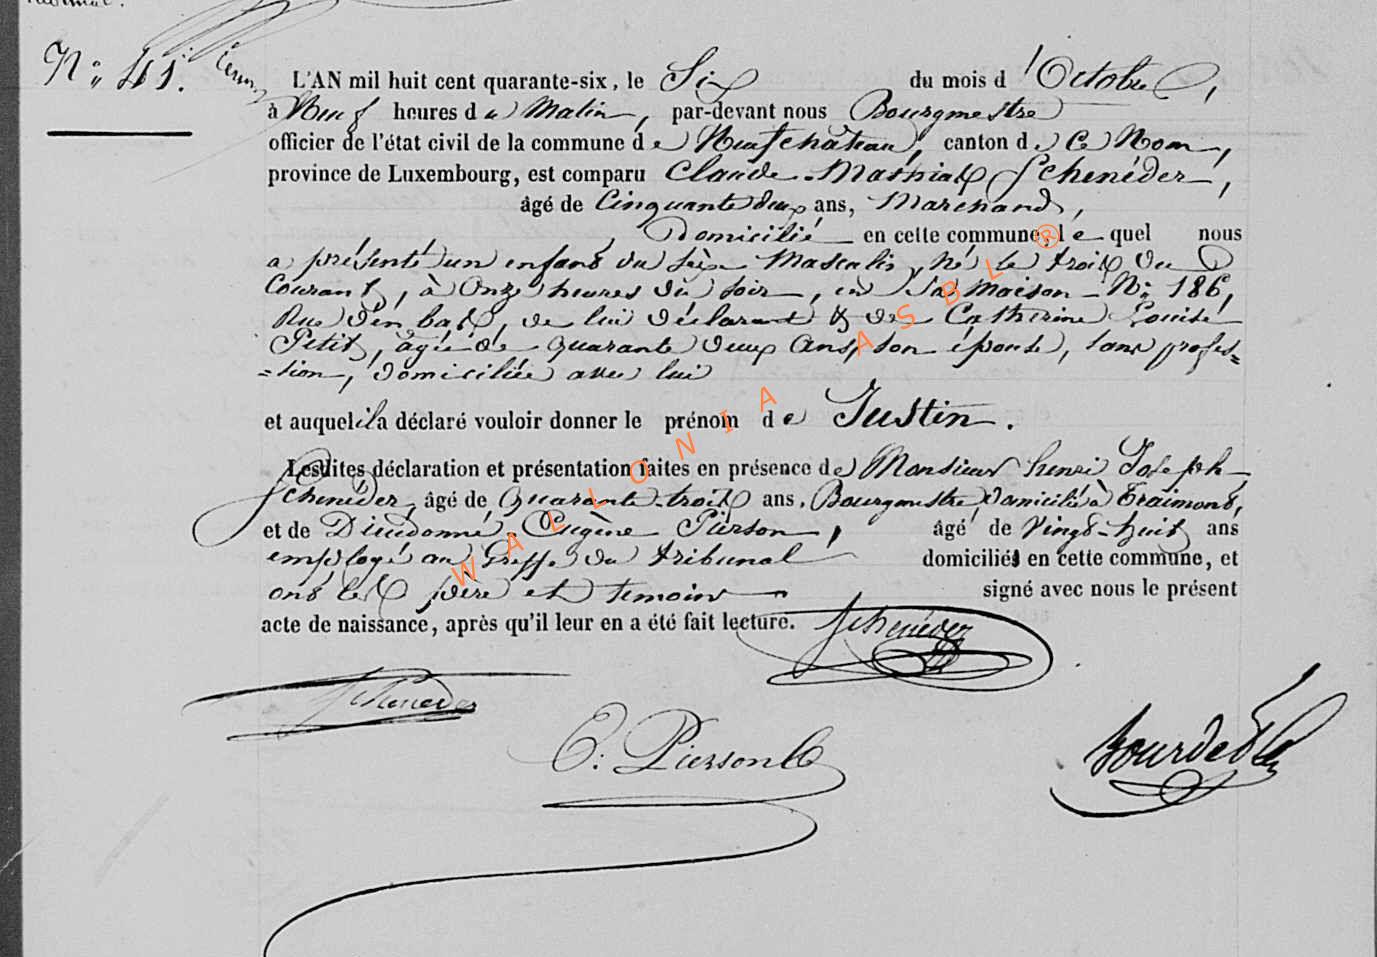 N° 41.
L'AN mil huit cent quarante-six, le Six du mois d'Octobre,
à Neuf heures du Matin, par-devant nous Bourgmestre
officier de l'état civil de la commune de Neufchâteau, canton de Ce Nom,
province de Luxembourg, est comparu Claude Mathias Schenéder,
âgé de Cinquante deux ans, Marchand,
Domicilié en cette commune, le quel nous
a présenté un enfant du sèxe Masculin, né le trois du
Courant, à Onze heures du soir, en Sa Maison N° 186,
Rue d'en bas, de lui déclarant & de Catherine Louise
Petit, agée de quarante deux ans, son épouse, sans profes=
=sion, domiciliée avec lui
et auquel il a déclaré vouloir donner le prénom de Justin.
Lesdites déclaration et présentation faites en présence de Monsieur henri Joseph
Schenéder, âgé de Quarante-trois ans, Bourgmestre, domicilié à Traimont,
et de Dieudonné Eugène Pierson, âgé de Vingt-huit ans
employé au Greffe du tribunal domiciliés en cette commune, et
ont les père et temoins signé avec nous le présent
acte de naissance, après qu'il leur en a été fait lecture. Schenéder
Schenéder
E. Pierson
WALLONIA ASBL ®